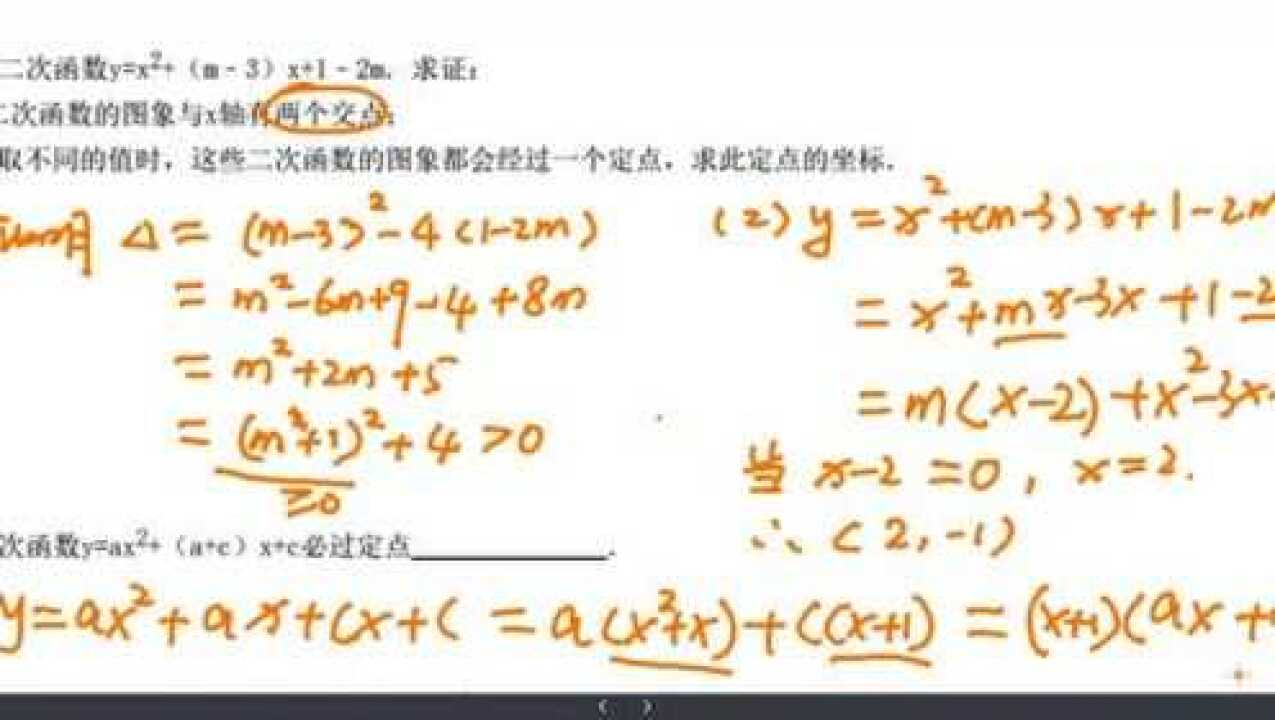 二次函数y=x²+（m-3）x+1-2m. 求证：
二次函数的图象与x轴有两个交点；
取不同的值时，这些二次函数的图象都会经过一个定点，求此定点的坐标.
Δ = (m-3)²-4(1-2m)
= m²-6m+9-4+8m
= m²+2m+5
= (m²+1)²+4>0
≥0
(2) y=x²+(m-3)x+1-2m
= x²+mx-3x+1-2
= m(x-2)+x²-3x
当 x-2=0, x=2.
∴ (2,-1)
次函数y=ax²+（a+c）x+c必过定点____________.
y=ax²+ax+cx+c = a(x²+x)+c(x+1) = (x+1)(ax+